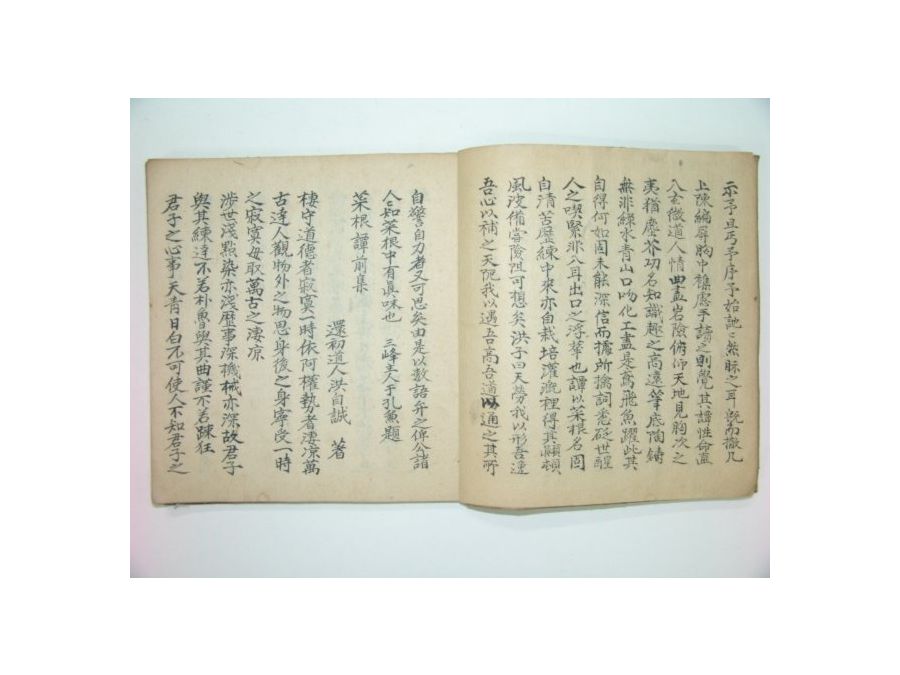 示予且丐予序予始訑〻然眎之耳旣而撤几
上陳編屛胸中襍慮手讀之則覺其譚性命直
入玄微道人情曲盡岩險俯仰天地見胸次之
夷猶塵芥功名知識趣之高遠筆底陶鑄
無非綠水青山口吻化工盡是鳶飛魚躍此其
自得何如固未能深信而據所擒詞悉砭世醒
人之喫緊非入耳出口之浮華也譚以菜根名固
自淸苦歷練中來亦自栽培灌漑裡得其顚頓
風波備嘗險阻可想矣洪子曰天勞我以形吾逸
吾心以補之天阨我以遇吾高吾道以通之其所
自警自力者又可思矣由是以數語弁之俾公諸
人〻知菜根中有眞味也 三峰主人于孔兼題
菜根譚前集
還初道人洪自誠 著
棲守道德者寂寞一時依阿權勢者凄凉萬
古達人觀物外之物思身後之身寧受一時
之寂寞毋取萬古之凄凉
涉世淺點染亦淺歷事深機械亦深故君子
與其練達不若朴魯與其曲謹不若踈狂
君子之心事天靑日白不可使人不知君子之